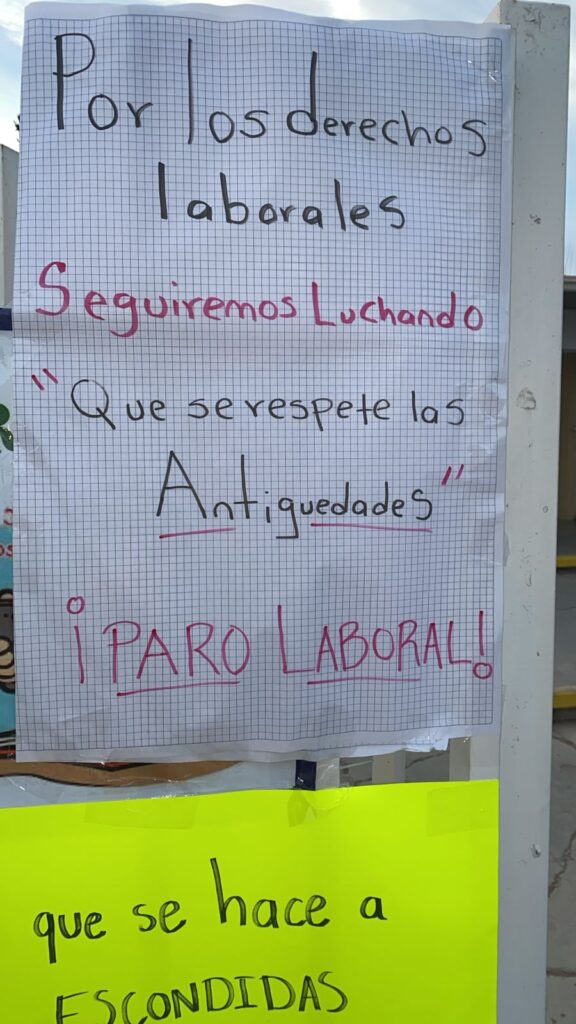 Por los derechos
laborales
Seguiremos Luchando
"Que se respete las
Antiguedades"
¡PARO LABORAL!
que se hace a
ESCONDIDAS